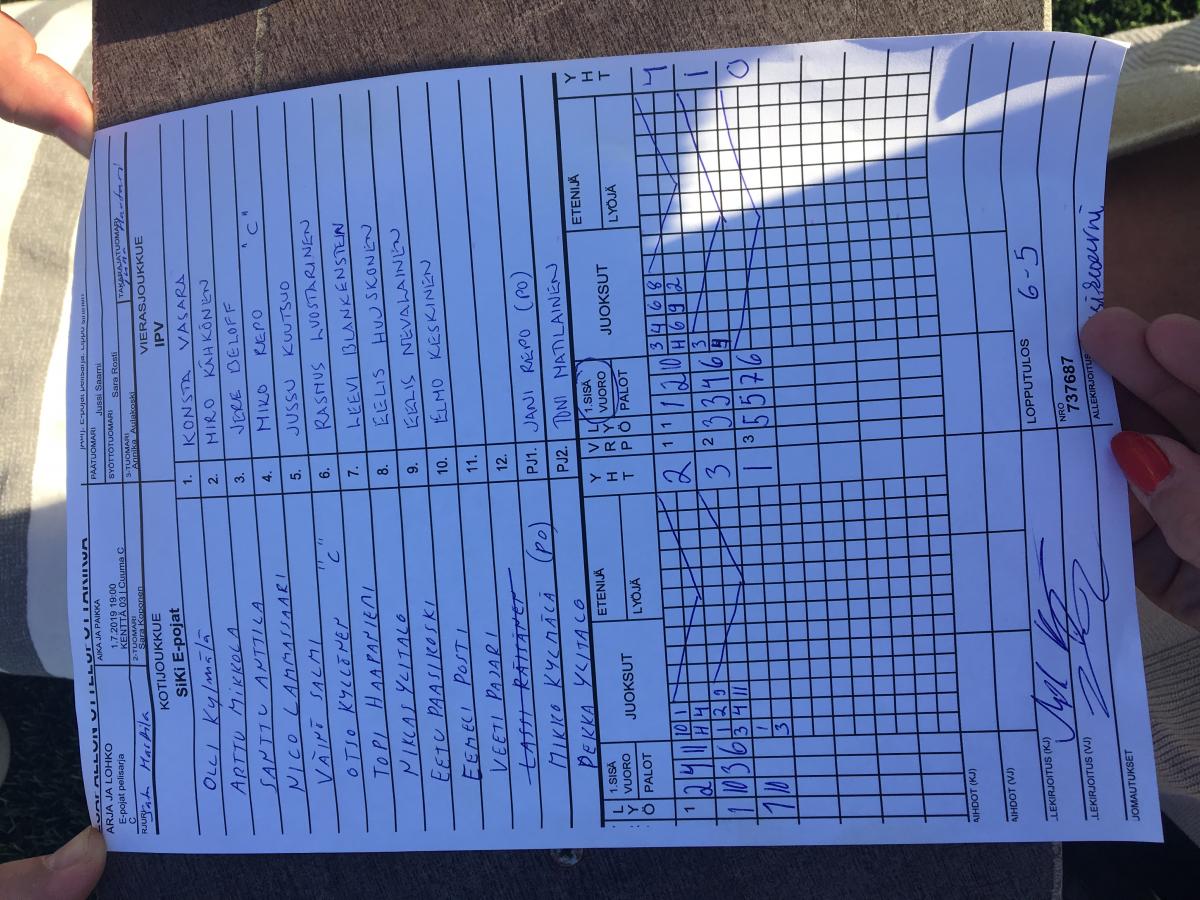 ARJA JA LOHKO
E-pojat pelisarja
C
AIKA JA PAIKKA
1.7.2019 19:00
KENTTÄ 03 | Cuuma C
PÄÄTUOMARI Jussi Saarni
SYÖTTÖTUOMARI Sara Rosti
2-TUOMARI
Sara Koponen
3-TUOMARI
Annika Aulakoski
TAKARAJATUOMARI
KOTIJOUKKUE
SiKi E-pojat
VIERASJOUKKUE
IPV
OLLI Kylmälä 1. KONSTA VASARA
ARTTU MIKKOLA 2. MIRO KÄHKÖNEN
SANTTU ANTTILA 3. JERE BELOFF
NILO LAMMASSAARI 4. MIKO REPO "C"
VÄINÖ SALMI 5. JUSSU KUUTSUO
OTSO KYLLÖNEN "C" 6. RASMUS LUOSTARINEN
TOPI HAAPANIEMI 7. LEEVI BLANKENSTEIN
NIKLAS YLITALO 8. EELIS HUJSKONEN
EETU PAASIKOSKI 9. EELIS NEVALAINEN
EEMELI POSTI 10. ELMO KESKINEN
VEETI PAJARI 11.
12.
LASSI RÄTTÄNEN PJ1. JANI REPO (PO)
MIKKO KYLMÄLÄ (PO) PJ2. TONI MATILAINEN
PEKKA YLITALO
L Y Ö 1.SISÄ VUORO PALOT JUOKSUT ETENIJÄ LYÖJÄ YHT V R P L Y Ö 1.SISÄ VUORO PALOT JUOKSUT ETENIJÄ LYÖJÄ YHT
1 2 4 11 10 1 2 1 1 1 2 10 3 4 6 8 4
H 4 H 6 9 2
1 10 3 6 1 2 9 3 2 3 3 4 6 3 1
3 4 11 4
7 10 1 1 3 5 5 7 6 0
3
AIHDOT (KJ)
AIHDOT (VJ)
LOPPUTULOS 6-5
LEKIRJOITUS (KJ)
NRO
737687
LEKIRJOITUS (VJ)
ALLEKIRJOITUS
JOMAUTUKSET